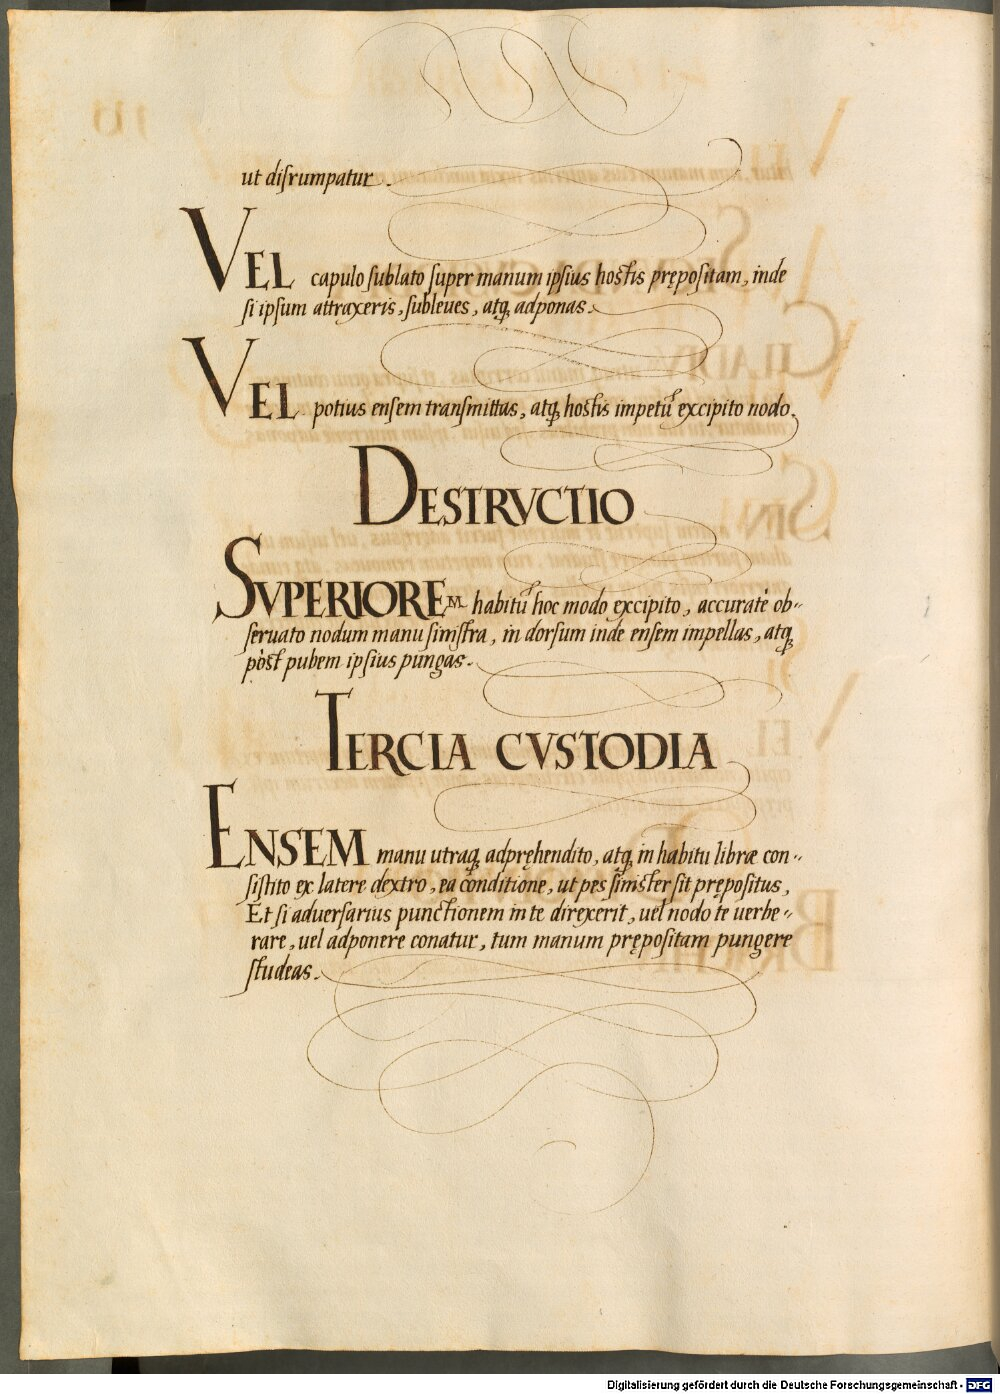 ut disrumpatur.
VEL capulo sublato super manum ipsius hostis prępositam, inde
si ipsum attraxeris, subleues, atq; adponas.
VEL potius ensem transmittas, atq; hostis impetũ excipito nodo.
DESTRVCTIO
SVPERIOREM habitũ hoc modo excipito, accuratè ob-
seruato nodum manu sinistra, in dorsum inde ensem impellas, atq;
pòst pubem ipsius pungas.
TERCIA CVSTODIA
ENSEM manu utraq; adpręhendito, atq; in habitu libræ con-
sistito ex latere dextro, ea conditione, ut pes sinister sit prępositus,
Et si aduersarius punctionem in te direxerit, uel nodo te uerbe-
rare, uel adponere conatur, tum manum prępositam pungere
studeas.
Digitalisierung gefördert durch die Deutsche Forschungsgemeinschaft - DFG